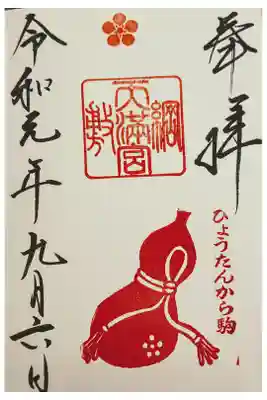 奉拝
綱敷天満宮
ひょうたんから駒
令和元年九月六日